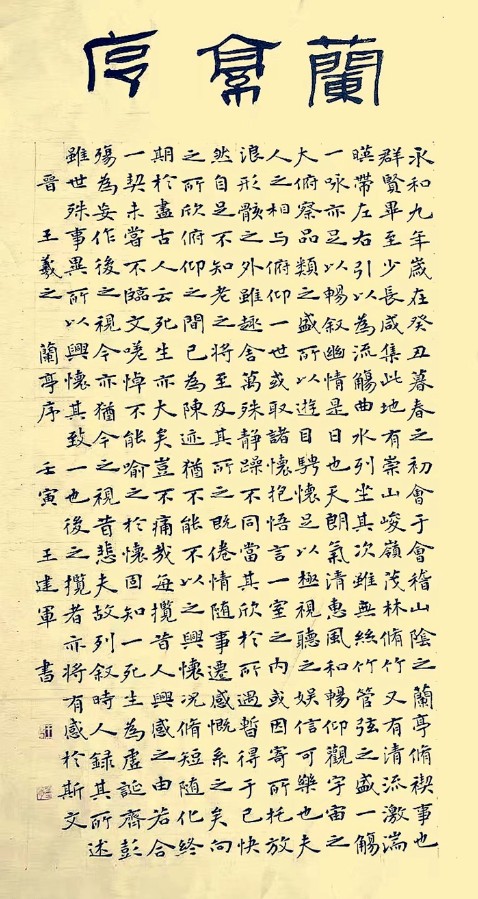 蘭亭序
永和九年歲在癸丑暮春之初會于會稽山陰之蘭亭脩禊事也
群賢畢至少長咸集此地有崇山峻嶺茂林脩竹又有清流激湍
暎帶左右引以為流觴曲水列坐其次雖無絲竹管弦之盛一觴
一咏亦足以暢叙幽情是日也天朗氣清惠風和暢仰觀宇宙之
大俯察品類之盛所以遊目騁懷足以極視聽之娛信可樂也夫
人之相与俯仰一世或取諸懷抱悟言一室之內或因寄所托放
浪形骸之外雖趣舍萬殊静躁不同當其欣於所遇暫得于己快
然自足不知老之將至及其所之既倦情随事遷感慨系之矣向
之所欣俯仰之間已為陳迹猶不能不以之興懷况脩短随化終
期於盡古人云死生亦大矣豈不痛哉每攬昔人興感之由若合
一契未嘗不臨文嗟悼不能喻之於懷固知一死生為虛誕齊彭
殤為妄作後之視今亦猶今之視昔悲夫故列叙時人録其所述
雖世殊事異所以興懷其致一也後之攬者亦將有感於斯文
晉 王羲之 蘭亭序 壬寅 王建軍 書